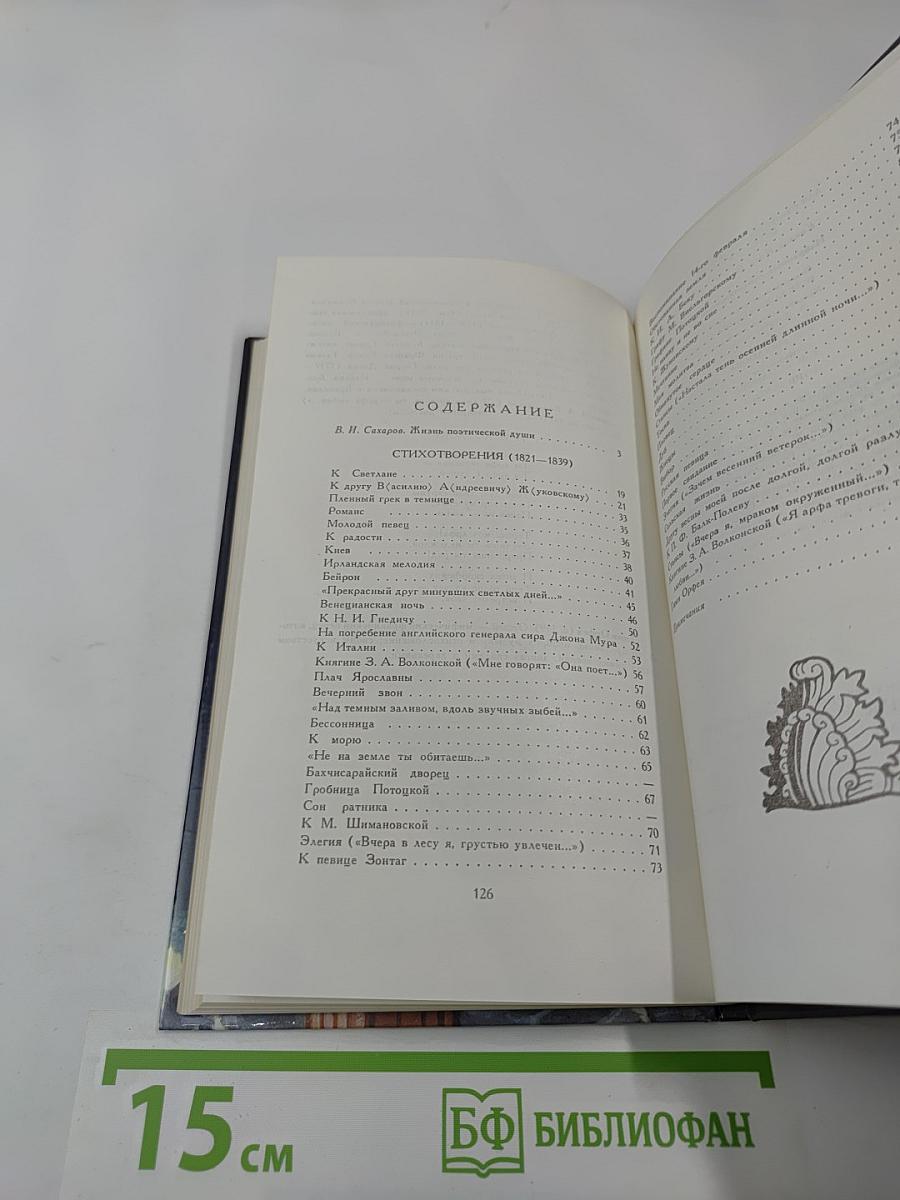 СОДЕРЖАНИЕ
В. И. Сахаров. Жизнь поэтической души . . . . . . . . 3
СТИХОТВОРЕНИЯ (1821—1839)
К Светлане . . . . . . . . 19
К другу В⟨асилию⟩ А⟨ндреевичу⟩ Ж⟨уковскому⟩ . . . 21
Пленный грек в темнице . . . . . . . . 33
Романс . . . . . . . . 35
Молодой певец . . . . . . . . 36
К радости . . . . . . . . 37
Киев . . . . . . . . 38
Ирландская мелодия . . . . . . . . 40
Бейрон . . . . . . . . 41
«Прекрасный друг минувших светлых дней...» . . . . 45
Венецианская ночь . . . . . . . . 46
К Н. И. Гнедичу . . . . . . . . 50
На погребение английского генерала сира Джона Мура . 52
К Италии . . . . . . . . 53
Княгине З. А. Волконской («Мне говорят: «Она поет...») 56
Плач Ярославны . . . . . . . . 57
Вечерний звон . . . . . . . . 60
«Над темным заливом, вдоль звучных зыбей...» . . . . 61
Бессонница . . . . . . . . 62
К морю . . . . . . . . 63
«Не на земле ты обитаешь...» . . . . . . . . 65
Бахчисарайский дворец . . . . . . . . —
Гробница Потоцкой . . . . . . . . 67
Сон ратника . . . . . . . . —
К М. Шимановской . . . . . . . . 70
Элегия («Вчера в лесу я, грустью увлечен...») . . . . 71
К певице Зонтаг . . . . . . . . 73
126
14-го февраля
земля
К И. А. Беку
Графу М. Виельгорскому
Графине Потоцкой
не во сне
К Жуковскому
Моя молитва
сердце
Стансы («Настала тень осенней длинной ночи...»)
певица
свидание
(«Зачем весенний ветерок...»)
Сельская жизнь
Другу весны моей после долгой, долгой разлу
К П. Ф. Балк-Полеву
Стансы («Вчера я, мраком окруженный...»)
Княгине З. А. Волконской («Я арфа тревоги, т
любви...»)
Орфея
Примечания
74
15 см
БФ БИБЛИОФАН